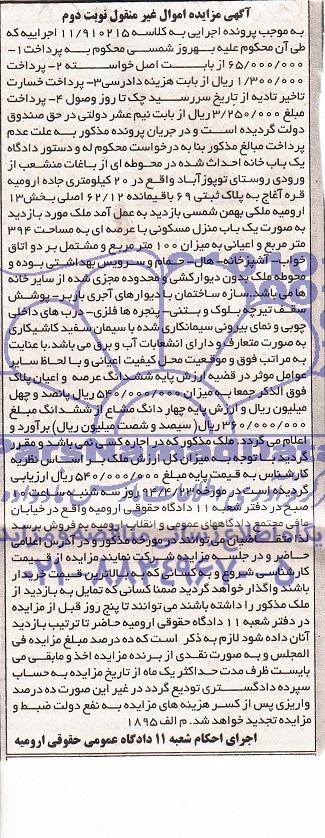 آگهی مزایده اموال غیر منقول نوبت دوم
به موجب پرونده اجرایی به کلاسه ۱۱/۹۱۰۲۱۵ اجراییه که
طی آن محکوم علیه بهروز شمسی محکوم به پرداخت ۱-
۶۵/۰۰۰/۰۰۰ از بابت اصل خواسته ۲- پرداخت
۱/۳۰۰/۰۰۰ ریال از بابت هزینه دادرسی ۳- پرداخت خسارت
تاخیر تادیه از تاریخ سررسید چک تا روز وصول ۴- پرداخت
۳/۲۵۰/۰۰۰ ریال از بابت نیم عشر دولتی در حق صندوق
دولت گردیده است و در جریان پرونده مذکور به علت عدم
پرداخت مبالغ مذکور بنا به درخواست محکوم له و دستور دادگاه
یک باب خانه احداث شده در محوطه ای از باغات منشعب از
ورودی روستای توپوزآباد واقع در ۲۰ کیلومتری جاده ارومیه
قره آغاج به پلاک ثبتی ۶۹ باقیمانده ۶۲/۱۲ اصلی بخش ۱۳
ارومیه ملکی بهمن شمسی بازدید به عمل آمد ملک مورد بازدید
به صورت یک باب منزل مسکونی با عرصه ای به مساحت ۳۹۴
متر مربع و اعیانی به میزان ۱۰۰ متر مربع و مشتمل بر دو اتاق
خواب- آشپزخانه- هال- حمام و سرویس بهداشتی بوده و
محوطه ملک بدون دیوارکشی و محدوده مجزی شده از سایر خانه
ها می باشد. سازه ساختمان با دیوارهای آجری باربر- پوشش
سقف تیرچه بلوک و بتنی- پنجره ها فلزی- درب های داخلی
چوبی و نمای بیرونی سیمانکاری شده با سیمان سفید کاشیکاری
به صورت متعارف و دارای انشعابات آب و برق می باشد. با عنایت
به مراتب فوق و موقعیت محل کیفیت اعیانی و با لحاظ سایر
عوامل موثر در قضیه ارزش پایه ششدانگ عرصه و اعیان پلاک
فوق الذکر جمعا به میزان ۵۴۰/۰۰۰/۰۰۰ ریال پانصد و چهل
میلیون ریال و ارزش پایه چهار دانگ مشاع از ششدانگ مبلغ
۳۶۰/۰۰۰/۰۰۰ ریال (سیصد و شصت میلیون ریال) برآورد و
اعلام می گردد. ملک مذکور که در اجاره کسی نمی باشد و مقرر
گردید با توجه به میزان کل ارزش ملک بر اساس نظریه
کارشناس به قیمت پایه مبلغ ۵۴۰/۰۰۰/۰۰۰ ریال ارزیابی
گردیده است در مورخه ۹۴/۴/۲۳ روز سه شنبه ساعت ۱۰
صبح در دفتر شعبه ۱۱ دادگاه حقوقی ارومیه واقع در خیابان
مافی مجتمع دادگاههای عمومی و انقلاب ارومیه به فروش برسد
لذا متقاضیان می توانند در مورخه مذکور و در آدرس اعلامی
حاضر و در جلسه مزایده شرکت نمایند مزایده از قیمت
کارشناسی شروع و به کسانی که به بالاترین قیمت خریدار
باشند واگذار خواهد گردید ضمنا کسانی که تمایل به بازدید از
ملک مذکور را داشته باشند می توانند تا پنج روز قبل از مزایده
در دفتر شعبه ۱۱ دادگاه حقوقی ارومیه حاضر تا ترتیب بازدید
آنان داده شود لازم به ذکر است که ده درصد مبلغ مزایده فی
المجلس و به صورت نقدی از برنده مزایده اخذ و مابقی می
بایست ظرف مدت حداکثر یک ماه از تاریخ مزایده به حساب
سپرده دادگستری تودیع گردد در غیر این صورت ده درصد
واریزی پس از کسر هزینه های مزایده به نفع دولت ضبط و
مزایده تجدید خواهد شد. م الف ۱۸۹۵
اجرای احکام شعبه ۱۱ دادگاه عمومی حقوقی ارومیه